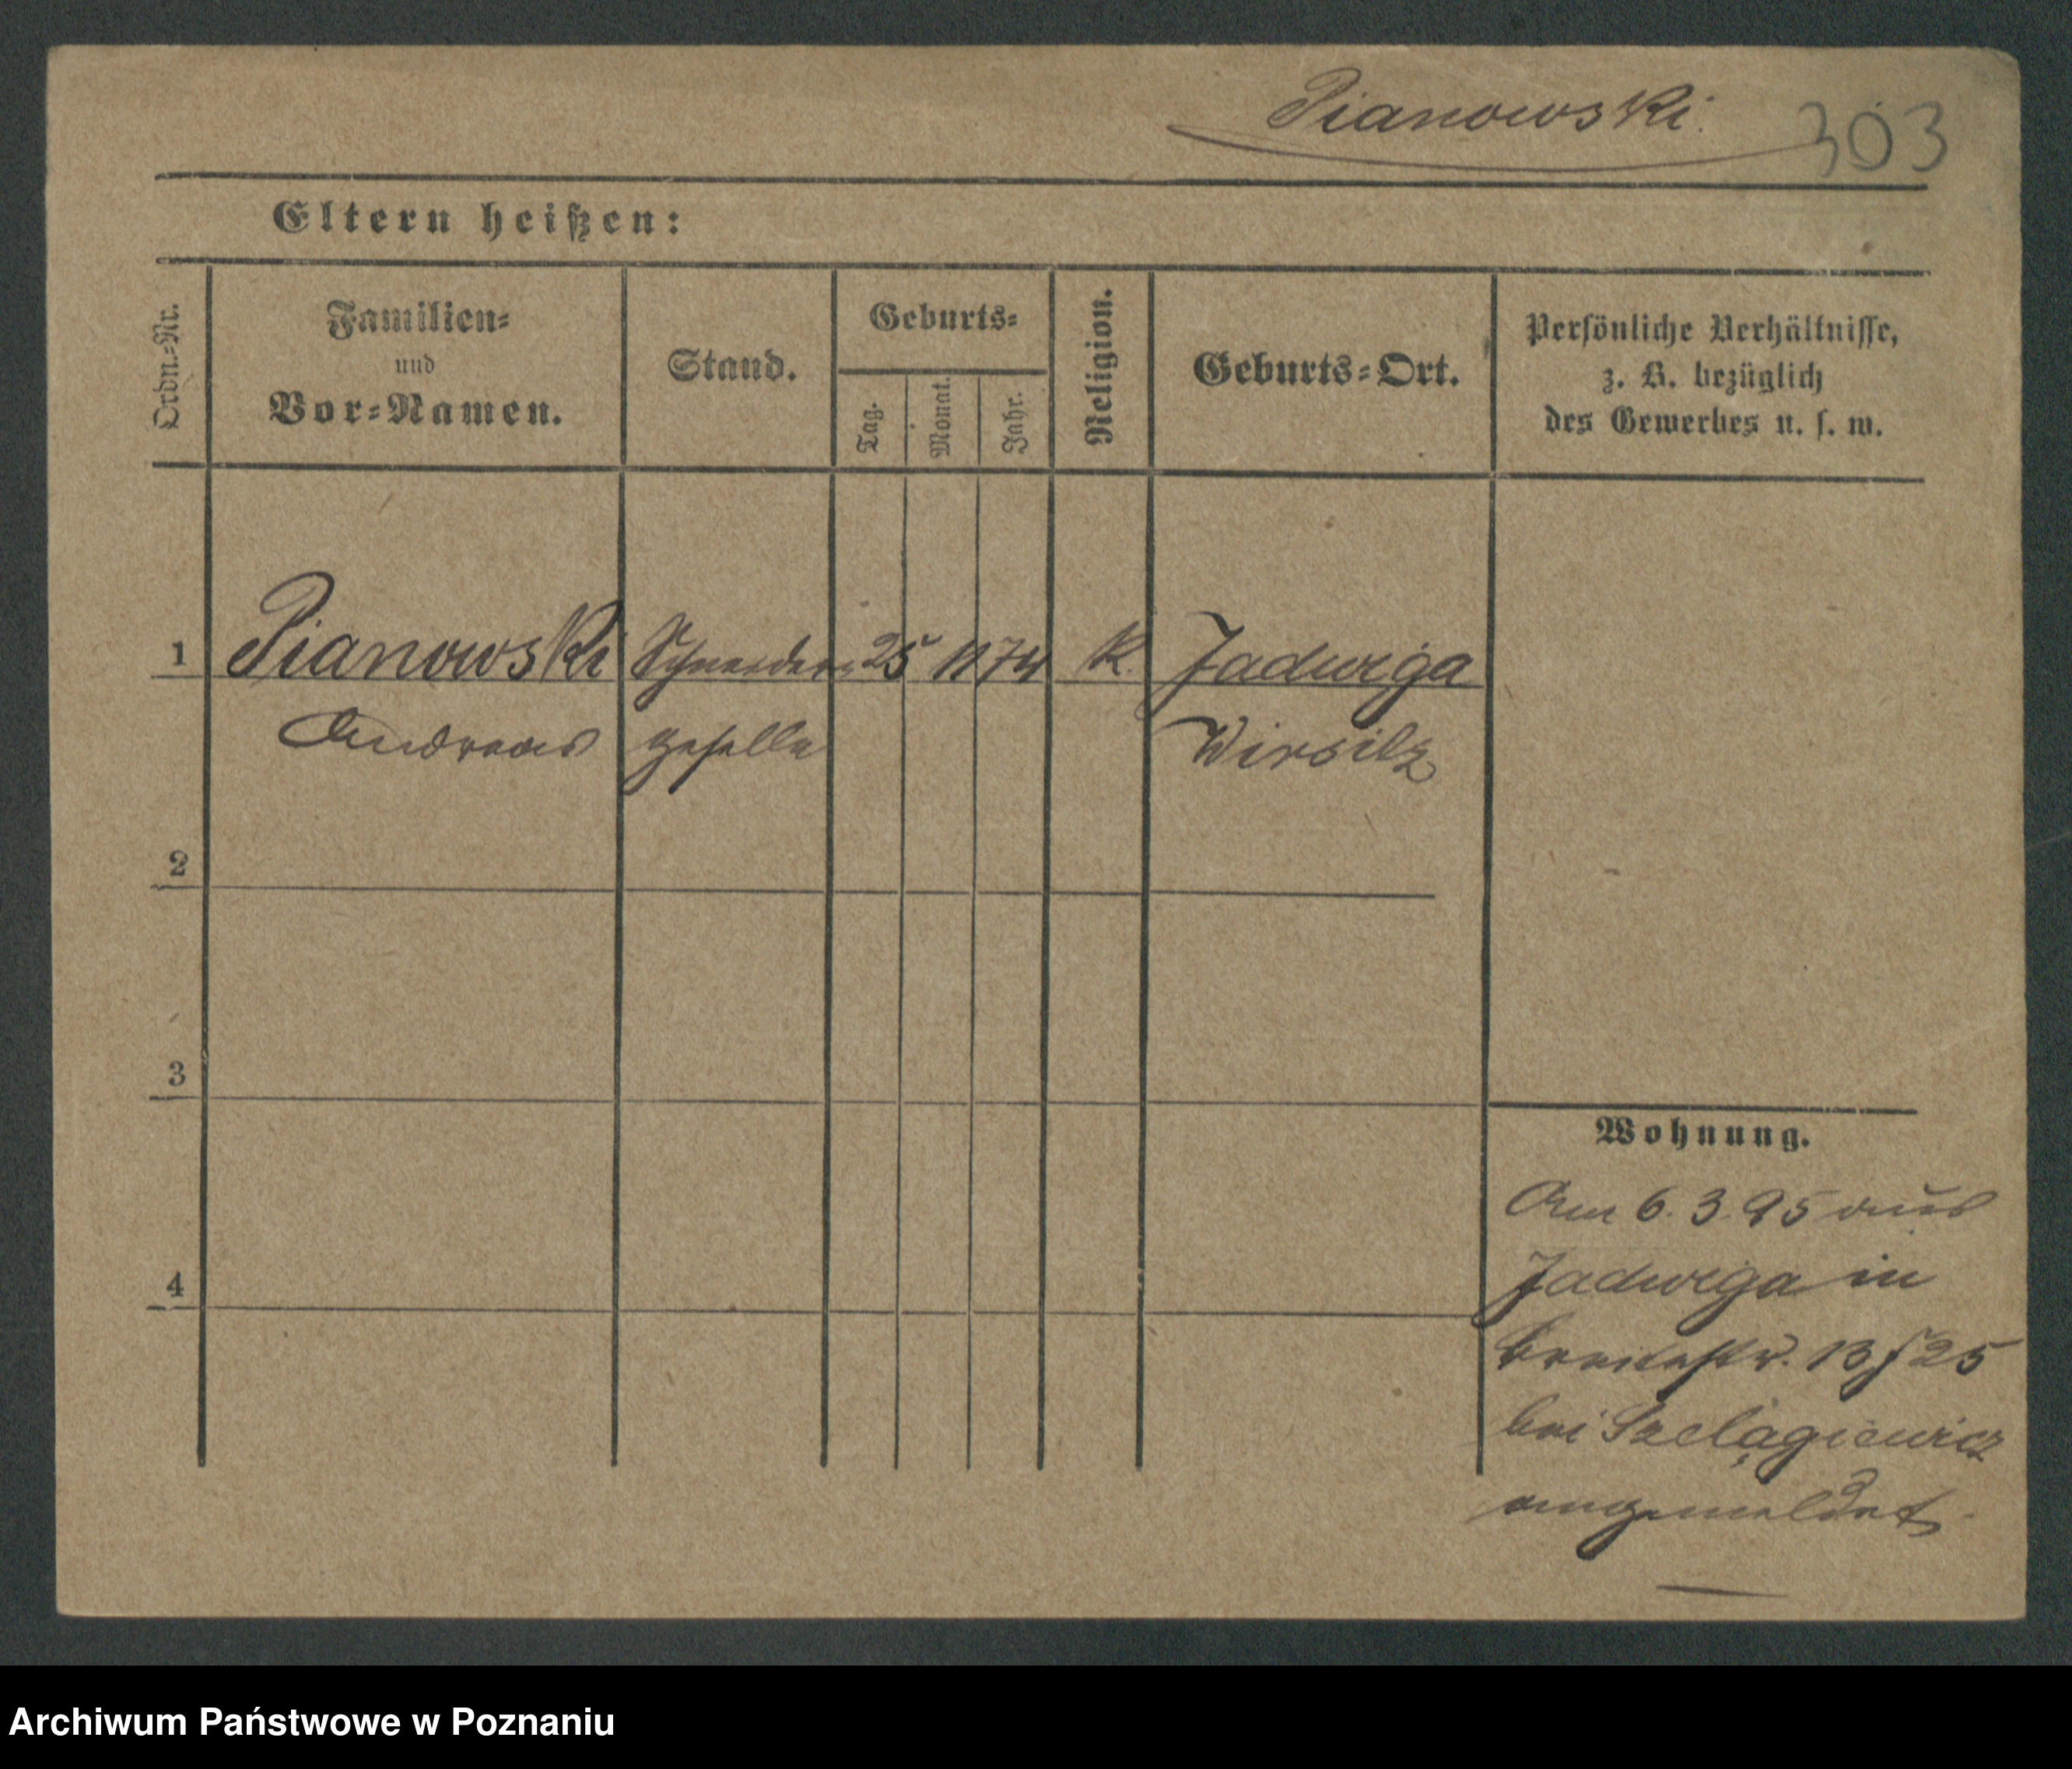 Pianowski.
303
Eltern heißen:
Ordn.=Nr.
Familien=
und
Vor=Namen.
Stand.
Geburts=
Tag.
Monat.
Jahr.
Religion.
Geburts=Ort.
Persönliche Verhältnisse,
z. B. bezüglich
des Gewerbes u. s. w.
1 Pianowski Schneider= 25 11 74 K. Jadwiga
Andreas geselle Wirsitz
2
3
4
Wohnung.
Am 6. 3. 95 aus
Jadwiga in
Breitestr. 25
bei Szelągiewicz
angemeldet.
Archiwum Państwowe w Poznaniu